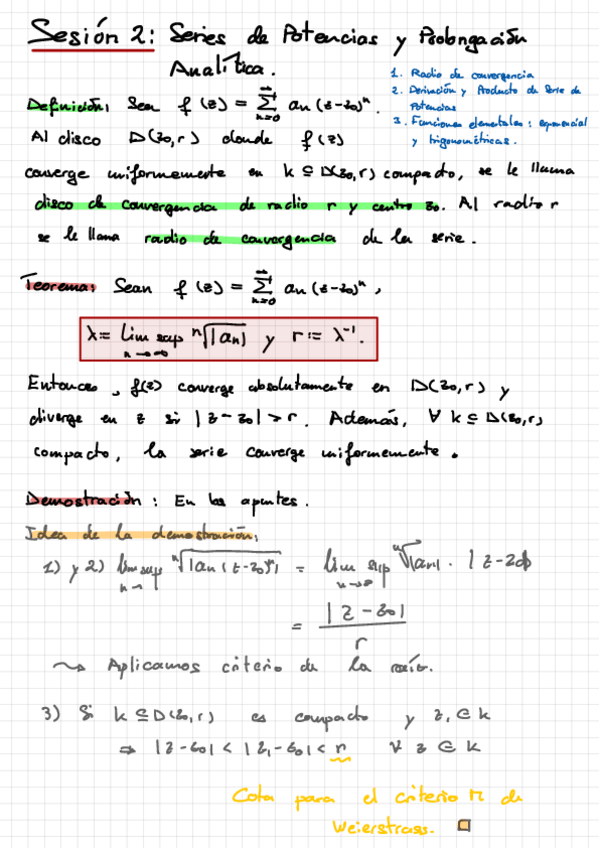 Sesión 2: Series de Potencias y Prolongación
Analítica.
1. Radio de convergencia
2. Derivación y Producto de Serie de
Potencias
3. Funciones elementales: exponencial
y trigonométricas.
Definición: Sea f(z) = ∑_{n=0}^{∞} an(z-z0)^n.
Al disco D(z0,r) donde f(z)
converge uniformemente en k ⊆ D(z0,r) compacto, se le llama
disco de convergencia de radio r y centro z0. Al radio r
se le llama radio de convergencia de la serie.
Teorema: Sean f(z) = ∑_{n=0}^{∞} an(z-z0)^n,
λ = lim sup_{n→∞} ⁿ√|an| y r := λ^{-1}.
Entonces, f(z) converge absolutamente en D(z0,r) y
diverge en z si |z-z0| > r. Además, ∀ k ⊆ D(z0,r)
compacto, la serie converge uniformemente.
Demostración: En los apuntes.
Idea de la demostración:
1) y 2) lim sup_{n→} ⁿ√|an(z-z0)^n| = lim sup_{n→∞} ⁿ√|an| · |z-z0|
= |z-z0| / r
⇝ Aplicamos criterio de la raíz.
3) Si k ⊆ D(z0,r) es compacto y z1 ∈ k
⇒ |z-z0| < |z1-z0| < r ∀ z ∈ k
Cota para el criterio M de
Weierstrass. □